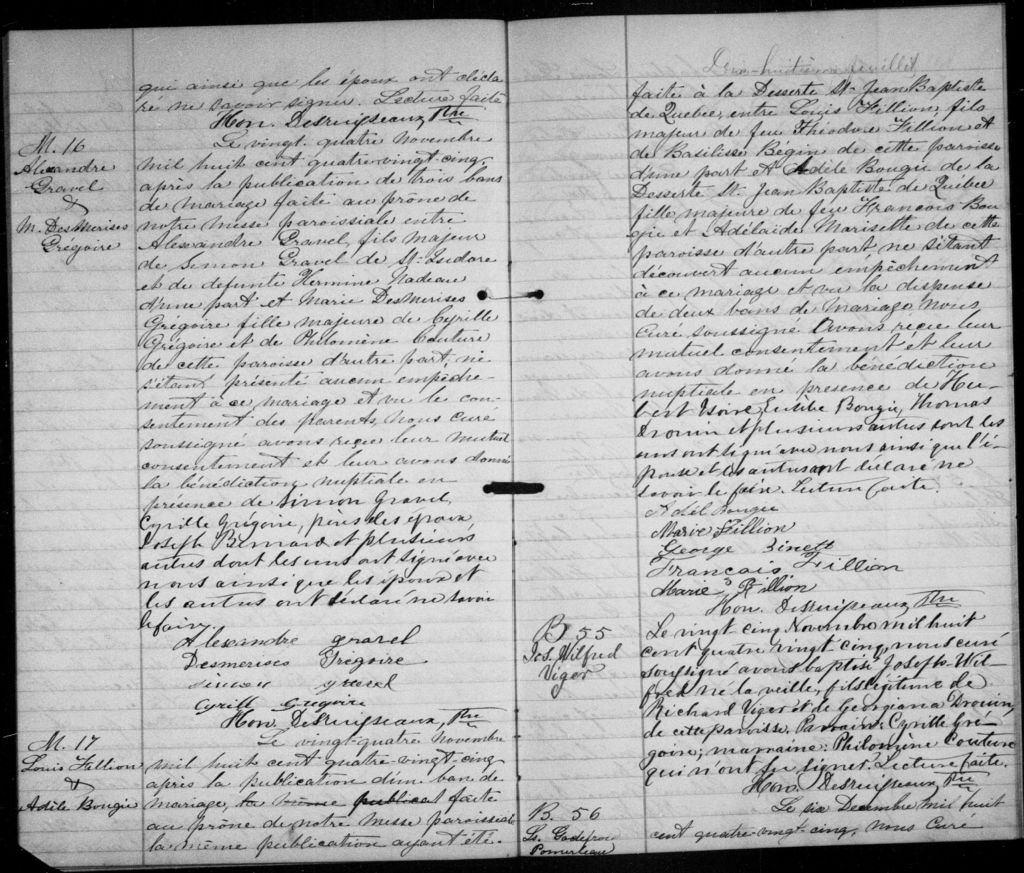 qui ainsi que les époux ont décla
ré ne savoir signer. Lecture faite
Hon. Desruisseaux, Ptre
M. 16
Alexandre
Gravel
&
M. DesMerises
Grégoire
Le vingt-quatre Novembre
mil huit cent quatre-vingt-cinq,
après la publication de trois bans
de mariage faite au prône de
notre messe paroissiale entre
Alexandre Gravel, fils majeur
de Simon Gravel de St-Isidore
et de defunte Hermine Nadeau
d'une part et Marie DesMerises
Grégoire fille majeure de Cyrille
Grégoire et de Philomène Couture
de cette paroisse d'autre part, ne
s'étant présenté aucun empêche-
ment à ce mariage et vu le con-
sentement des parents, nous curé
soussigné avons reçu leur mutuel
consentement et leur avons donné
la bénédiction nuptiale en
présence de Simon Gravel,
Cyrille Grégoire, pères des époux,
Joseph Bernard et plusieurs
autres dont les uns ont signé avec
nous ainsi que les époux et
les autres ont déclaré ne savoir
le faire
Alexandre gravel
Desmerises Grégoire
simon gravel
Cyrill Grégoire
Hon. Desruisseaux, Ptre
M. 17
Louis Fillion
&
Adèle Bougie
Le vingt-quatre Novembre
mil huit cent quatre-vingt-cinq
après la publication d'un ban de
mariage, la même publicat faite
au prône de notre messe paroissiale
la même publication ayant été
Dix-huitième feuillet
faite à la Desserte St-Jean Baptiste
de Quebec, entre Louis Fillion, fils
majeur de feu Théodore Fillion et
de Basilisse Bégin de cette paroisse
d'une part et Adèle Bougie de la
Desserte St-Jean Baptiste de Québec
fille majeure de feu François Bou
gie et Adélaide Marisette de cette
paroisse d'autre part, ne s'étant
découvert aucun empêchement
à ce mariage et vu la dispense
de deux bans de mariage nous
Curé soussigné avons reçu leur
mutuel consentement et leur
avons donné la bénédiction
nuptiale en presence de Hu-
bert Isoire Eusèbe Bougie, Thomas
Drouin et plusieurs autres dont les
uns ont signé avec nous ainsi que l'é-
pouse et les autres ont déclaré ne
savoir le faire. Lecture faite.
Adèl Bougie
Marie Fillion
George Binett
Francois Fillion
Marie Fillion
Hon. Desruisseaux Ptre
B 55
Jos. Wilfred
Viger
Le vingt cinq Novembre mil huit
cent quatre vingt cinq, nous curé
soussigné avons baptisé Joseph-Wil-
fred né la veille, fils légitime de
Richard Viger et de Georgiana Drouin,
de cette paroisse. Parrain: Cyrille Gré-
goire; marraine: Philomène Couture
qui n'ont su signer. Lecture faite.
Hon. Desruisseaux, Ptre
B. 56
Ls. Godefroi
Pomerleau
Le six Decembre mil huit
cent quatre-vingt-cinq, nous Curé